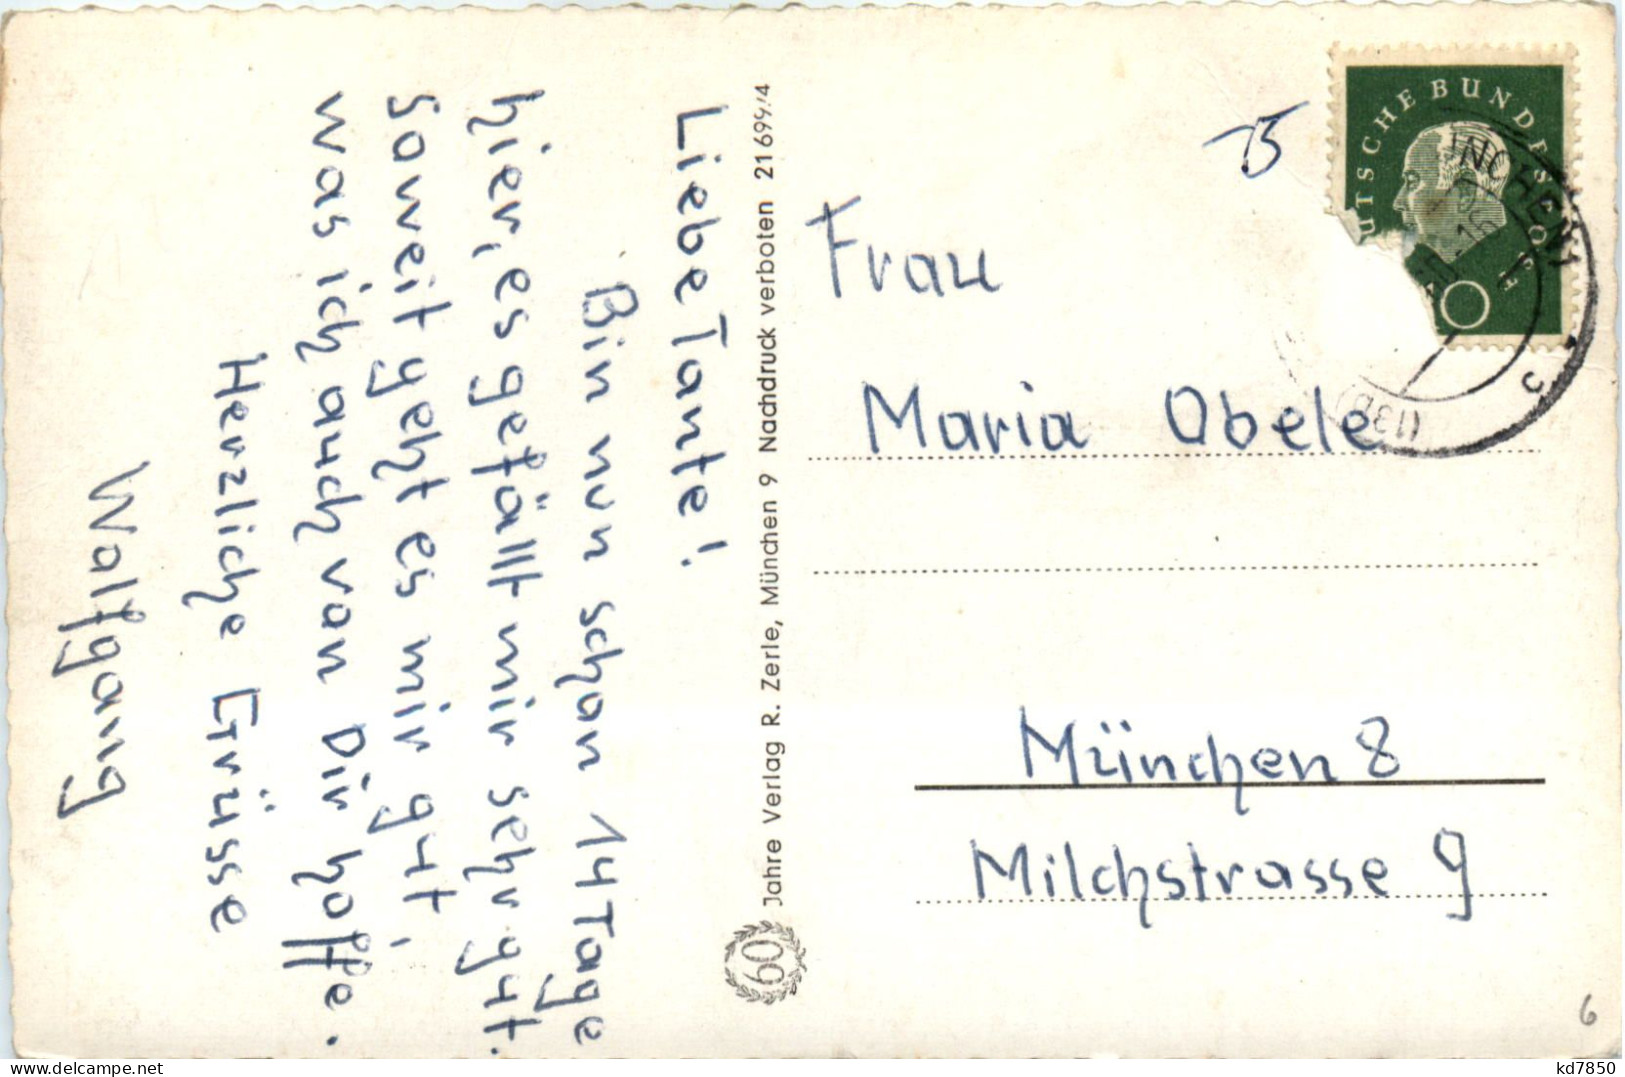 Liebe Tante!
Bin nun schon 14 Tage
hier, es gefällt mir sehr gut.
Soweit geht es mir gut,
was ich auch von Dir hoffe.
Herzliche Grüsse
Wolfgang
60 Jahre Verlag R. Zerle, München 9 Nachdruck verboten 21699/4
Frau
Maria Obele
München 8
Milchstrasse 9
UTSCHE BUNDESPOST
0
(13b)
6
www.delcampe.net
kd7850